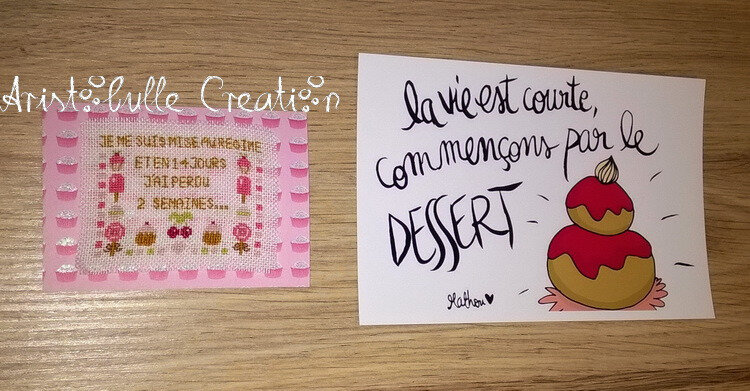 Aristobulle Creation
JE ME SUIS MISE AU REGIME
ET EN 14 JOURS
J'AI PERDU
2 SEMAINES...
la vie est courte,
commençons par le
DESSERT
Mathou